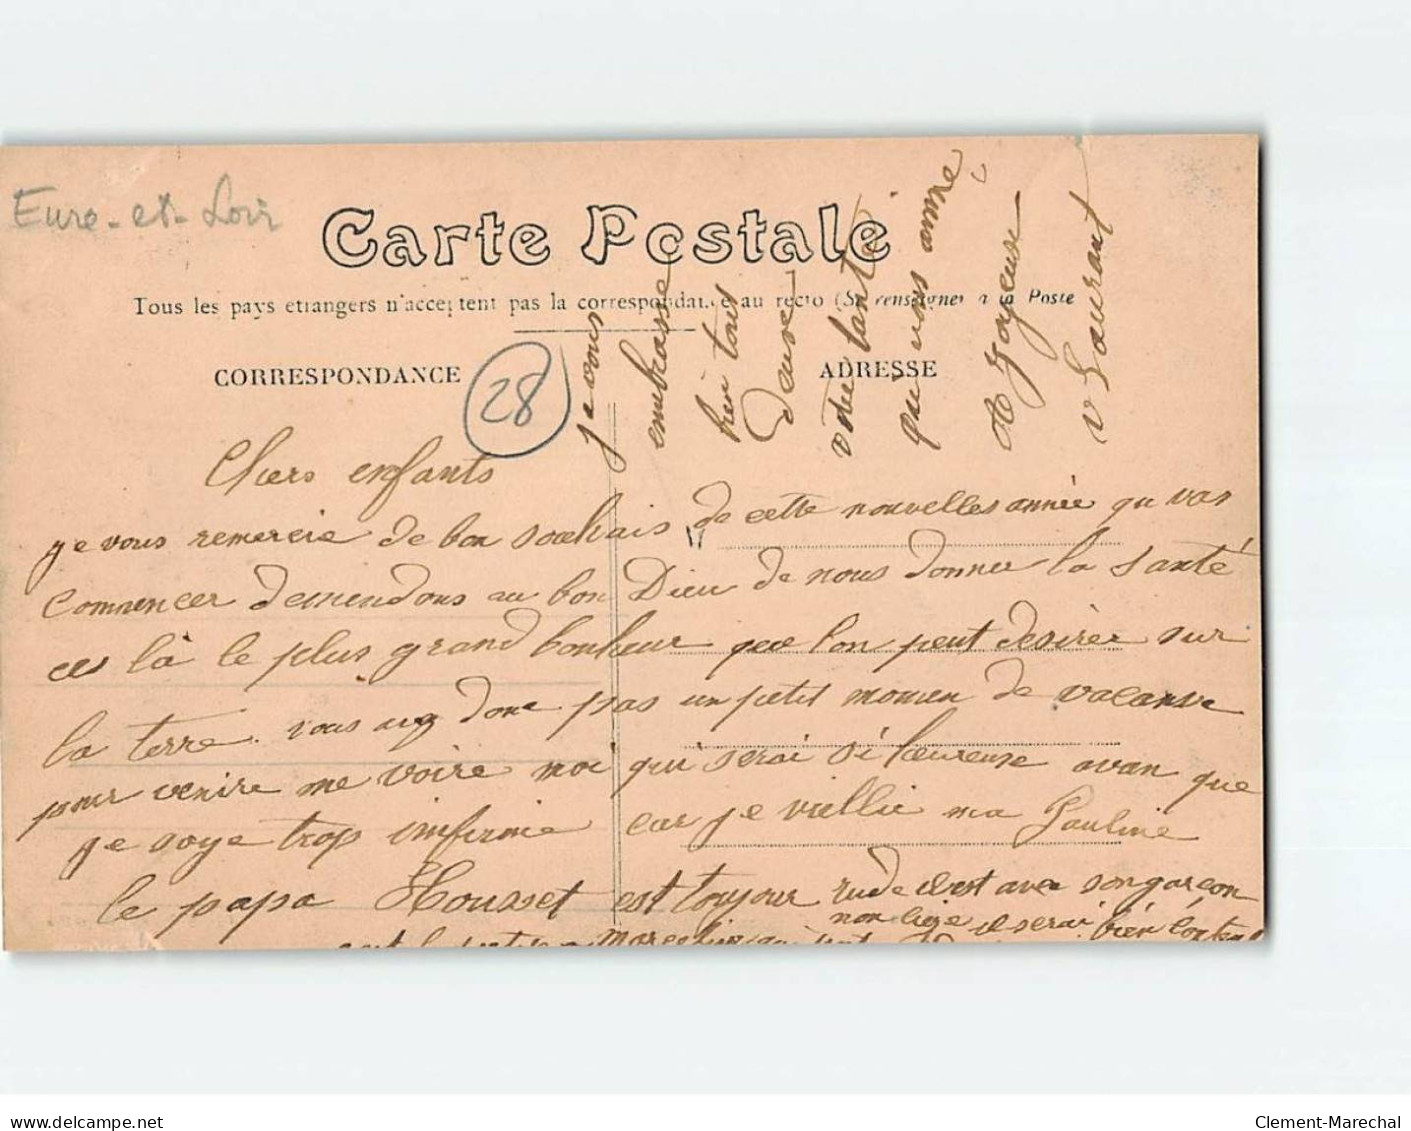 Eure-et-Loir
Carte Postale
Tous les pays etrangers n'acceptent pas la correspondance au recto (Se renseigner à la Poste
CORRESPONDANCE
ADRESSE
28
Chers enfants
je vous remercie de bon souhais de cette nouvelles année qu vas
commencer demendons au bon Dieu de nous donner la santé
ces là le plus grand bonheur que lon peut désirée sur
la terre. vous donc pas un petit momen de vacanse
pour venire me voire moi qui serai si heureuse avan que
je soye trop infirmie car je viellie ma Pauline
le papa Housset est toujour rude il est avec son garçon
il serai bien
je vous
embrasse
bien tous
votre tante
qui vous aime
A Joyeuse
v Laurant
delcampe.net
Clement-Marechal